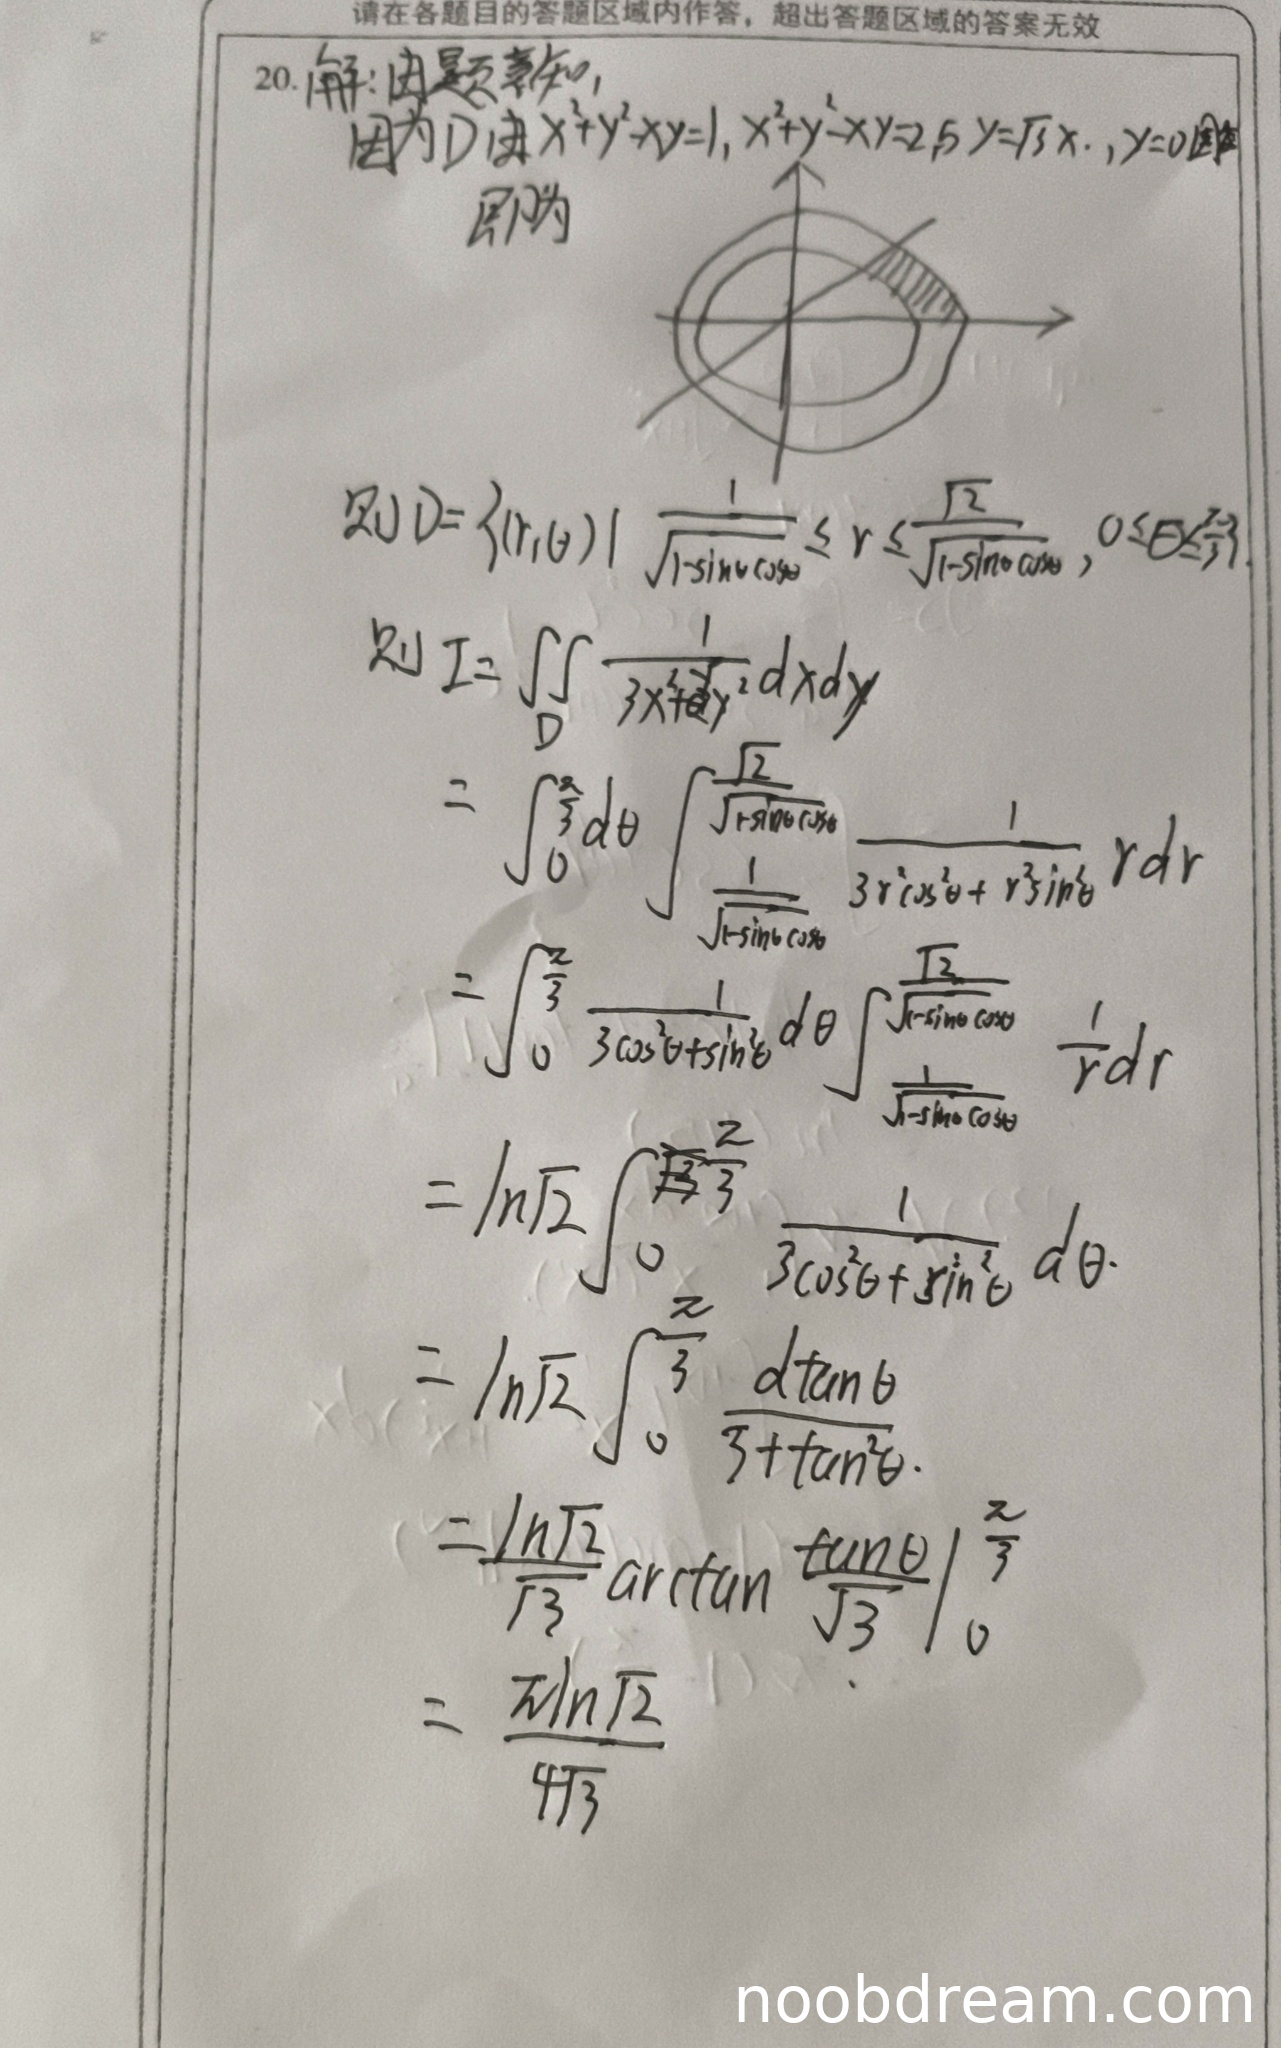 请在各题目的答题区域内作答，超出答题区域的答案无效
20. 解:由题意知,
因为D由 x²+y²-xy=1, x²+y²-xy=2与 y=√3 x., y=0围
即为
则 D={(r,θ)| 1/√(1-sinθcosθ) ≤ r ≤ √2/√(1-sinθcosθ), 0≤θ≤π/3}.
则 I= ∬_D 1/(3x²+y²) dxdy
= ∫_0^{π/3} dθ ∫_{1/√(1-sinθcosθ)}^{√2/√(1-sinθcosθ)} 1/(3r²cos²θ+r²sin²θ) rdr
= ∫_0^{π/3} 1/(3cos²θ+sin²θ) dθ ∫_{1/√(1-sinθcosθ)}^{√2/√(1-sinθcosθ)} 1/r dr
= ln√2 ∫_0^{π/3} 1/(3cos²θ+sin²θ) dθ.
= ln√2 ∫_0^{π/3} dtanθ/(3+tan²θ).
= ln√2/√3 arctan tanθ/√3 |_0^{π/3}
= πln√2/4√3
noobdream.com